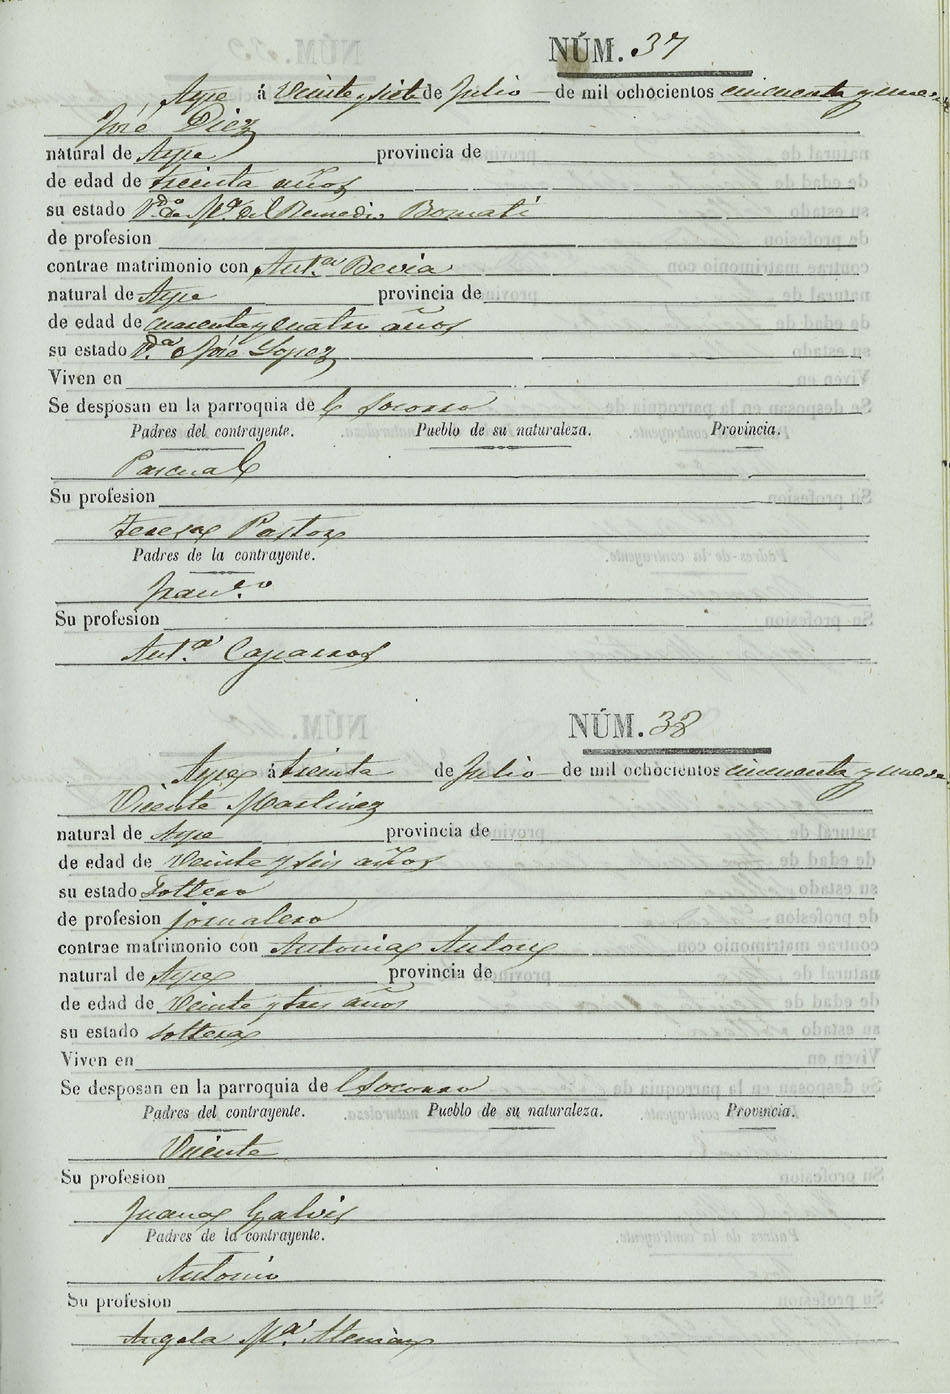 NÚM. 37
Aspe á Veinte y siete de Julio de mil ochocientos cincuenta y nueve
José Diez
natural de Aspe provincia de
de edad de treinta años
su estado V.do de M.a del Remedio Bomati
de profesion
contrae matrimonio con Ant.a Bevia
natural de Aspe provincia de
de edad de cuarenta y cuatro años
su estado V.da José Lopez
Viven en
Se desposan en la parroquia de l Socorro
Padres del contrayente. Pueblo de su naturaleza. Provincia.
Pascual
Su profesion
Teresa Pastor
Padres de la contrayente.
Fran.co
Su profesion
Ant.a Caparros
NÚM. 38
Aspe á treinta de Julio de mil ochocientos cincuenta y nueve
Vicente Martinez
natural de Aspe provincia de
de edad de Veinte y seis años
su estado Soltero
de profesion jornalero
contrae matrimonio con Antonia Anton
natural de Aspe provincia de
de edad de Veinte y tres años
su estado soltera
Viven en
Se desposan en la parroquia de l Socorro
Padres del contrayente. Pueblo de su naturaleza. Provincia.
Vicente
Su profesion
Juana Galvis
Padres de la contrayente.
Antonio
Su profesion
Angela M.a Aleman